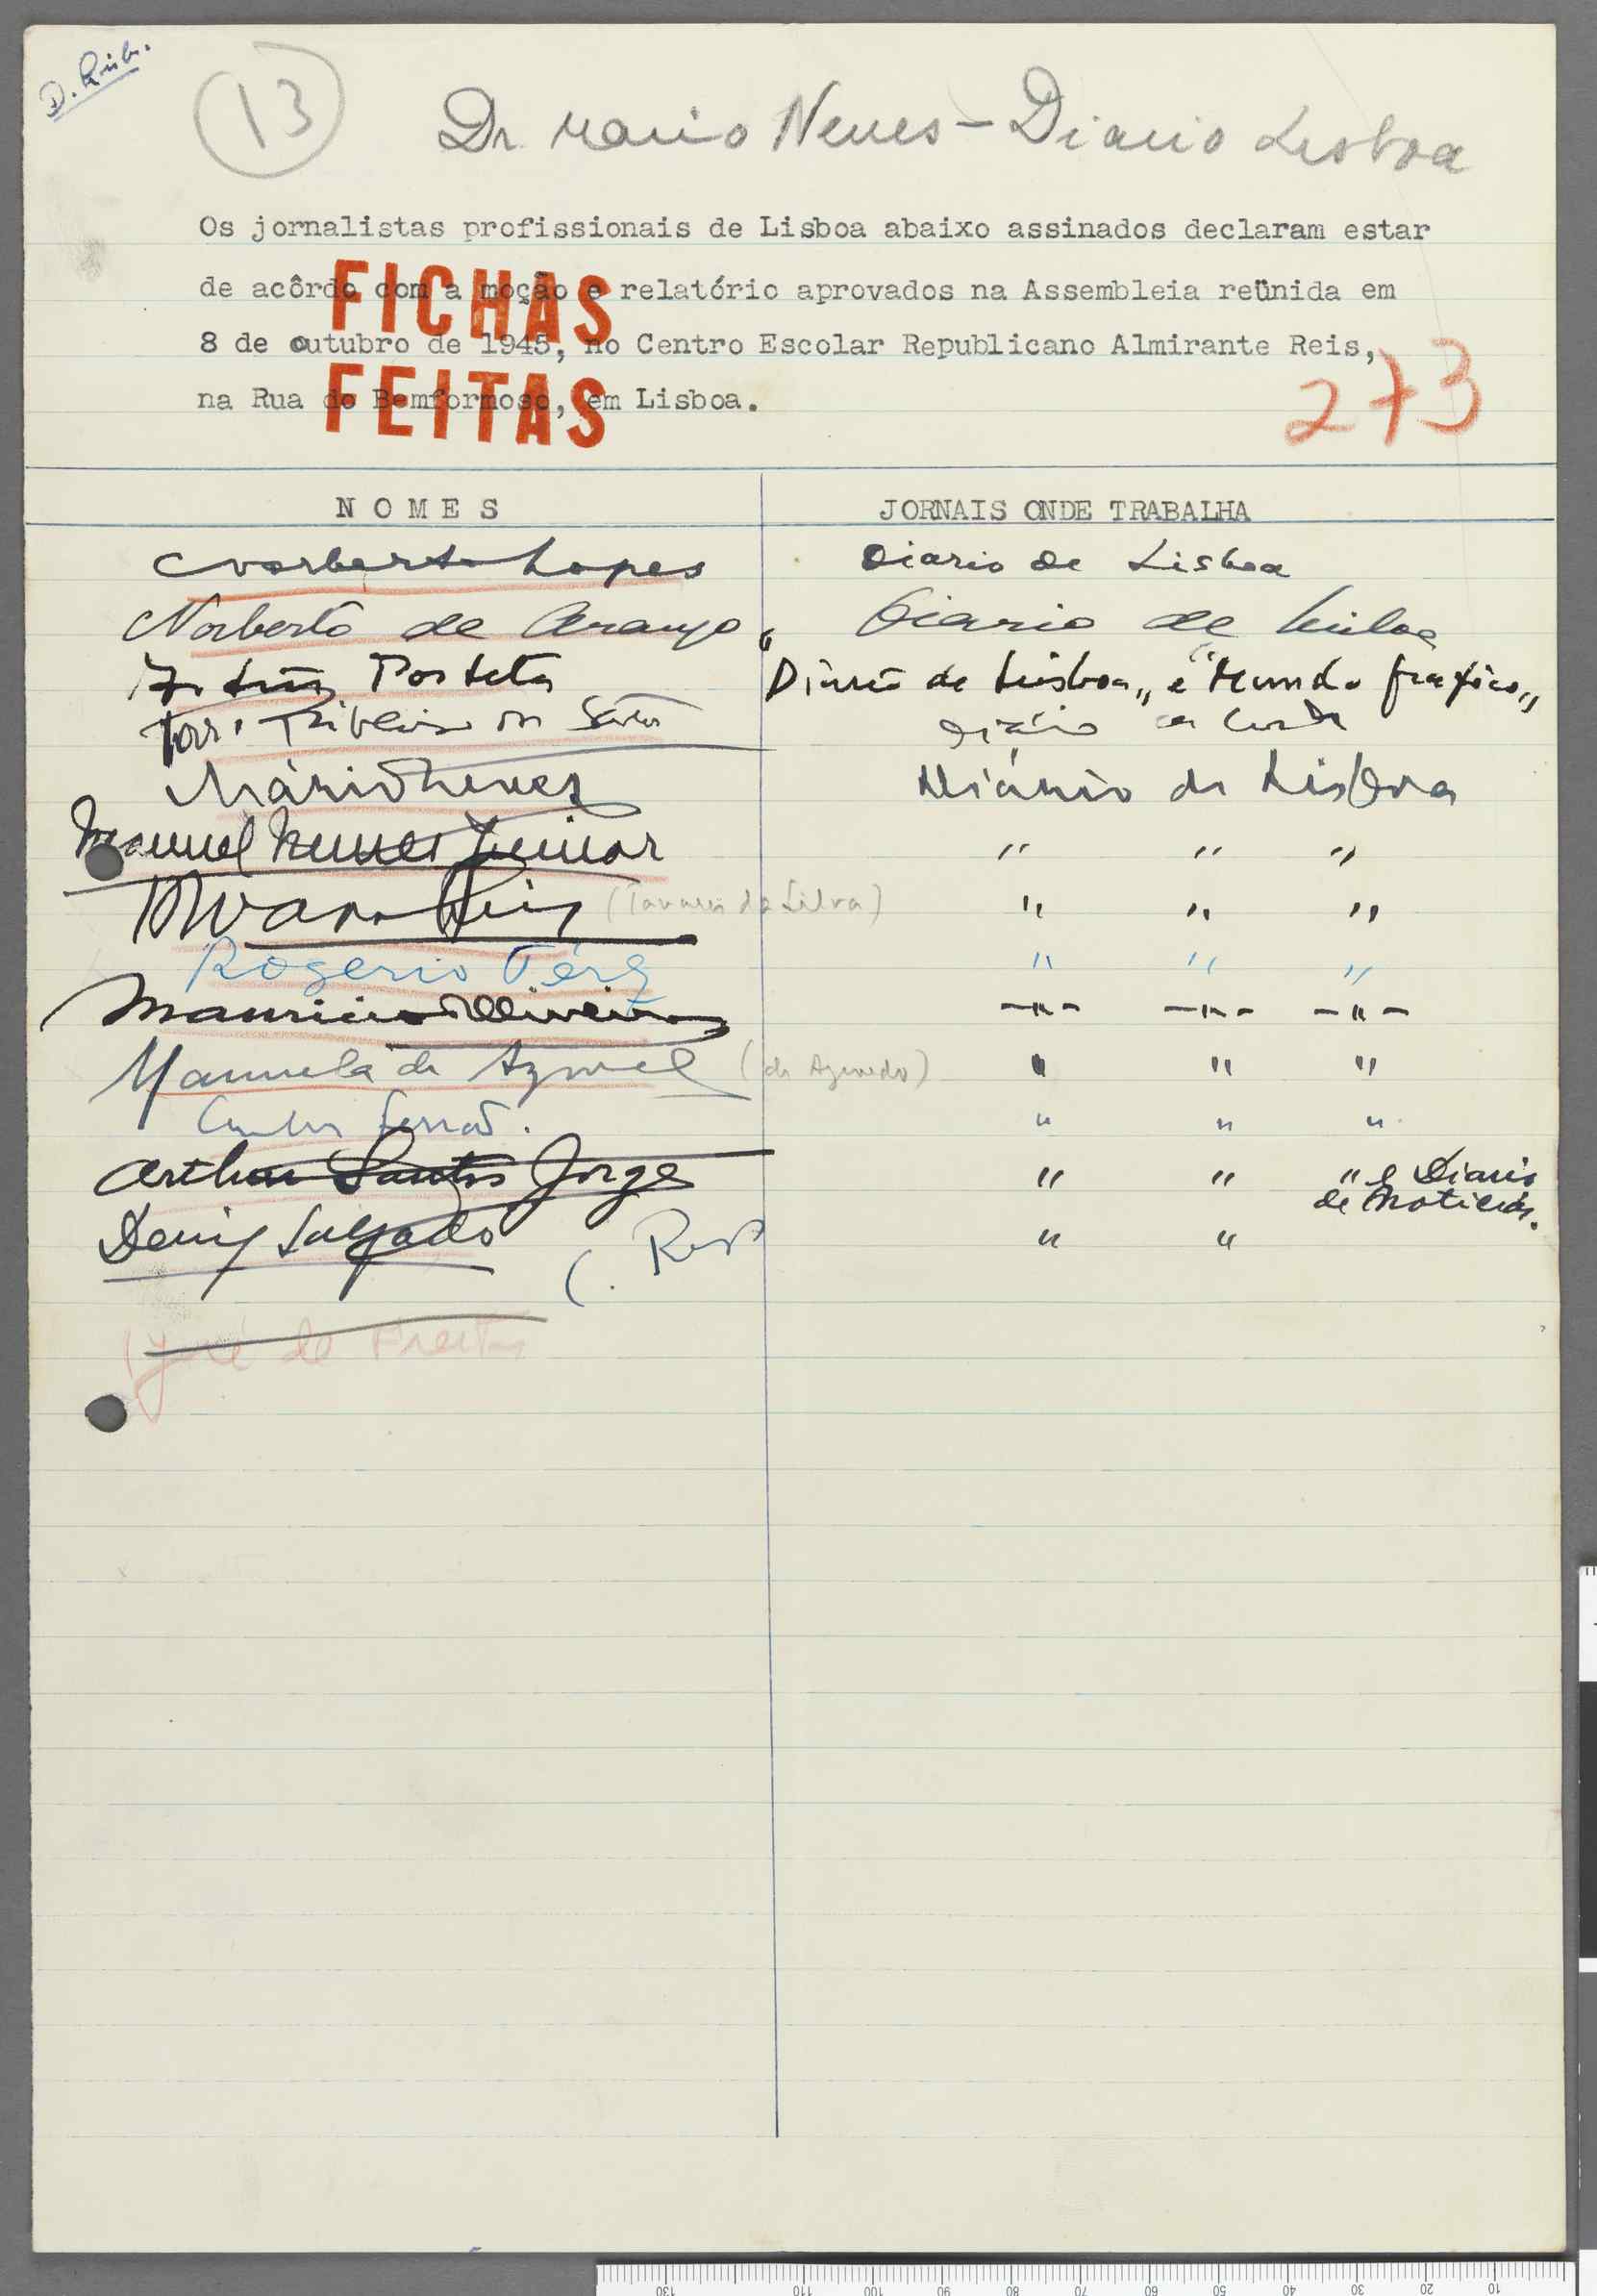 13
Dr Mario Neves - Diario Lisboa
Os jornalistas profissionais de Lisboa abaixo assinados declaram estar
de acôrdo com a moção e relatório aprovados na Assembleia reünida em
8 de outubro de 1945, no Centro Escolar Republicano Almirante Reis,
na Rua do Bemformoso, em Lisboa.
FICHAS
FEITAS
273
NOMES JORNAIS ONDE TRABALHA
Norberto Lopes Diario de Lisboa
Norberto de Araujo Diario de Lisboa
Artur Portela "Diário de Lisboa„ e "Mundo Grafico„
Ribeiro dos Santos Diário de Lisboa
Mário Neves Diário de Lisboa
Manuel Nunes Junior " " "
(Tavares da Silva) " " "
Rogerio Pérez " " "
Mauricio Oliveira -"- -"- -"-
Manuela de Azevedo (de Azevedo) " " "
Carlos Ferrão. " " "
Arthur Santos Jorge " " " e Diario
de Noticias.
Deniz Salgado " "
José de Freitas